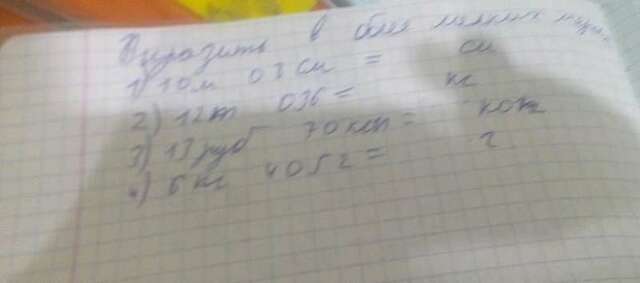 Выразить в более мелких мерах
1) 10 м 03 см = см
2) 12 т 036 = кг
3) 13 руб 70 коп = коп
4) 6 кг 405 г = г